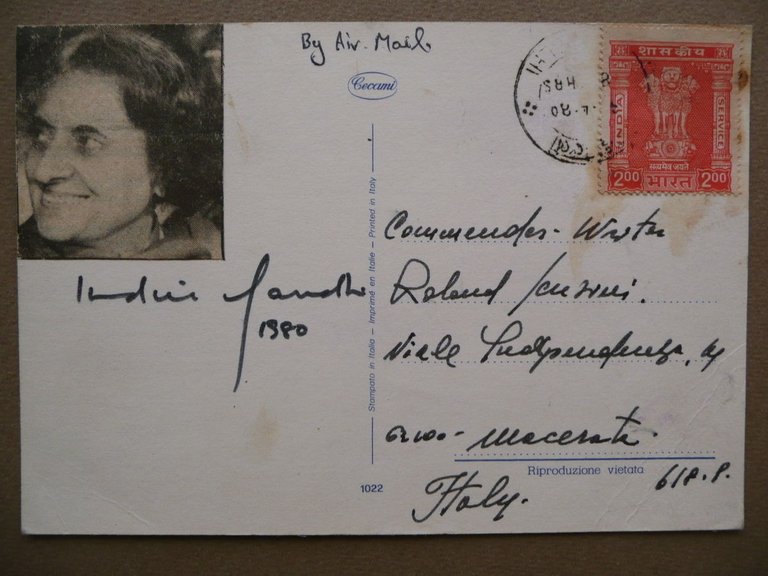 By Air Mail
Ceccami
शासकीय
INDIA
SERVICE
सत्यमेव जयते
2.00 भारत 2.00
HRS
Indira Gandhi
1980
Commender
Roland
Viale Indipendenza,
62100 - Macerata
Italy.
618.P.
Stampato in Italia — Imprimé en Italie — Printed in Italy
Riproduzione vietata
1022